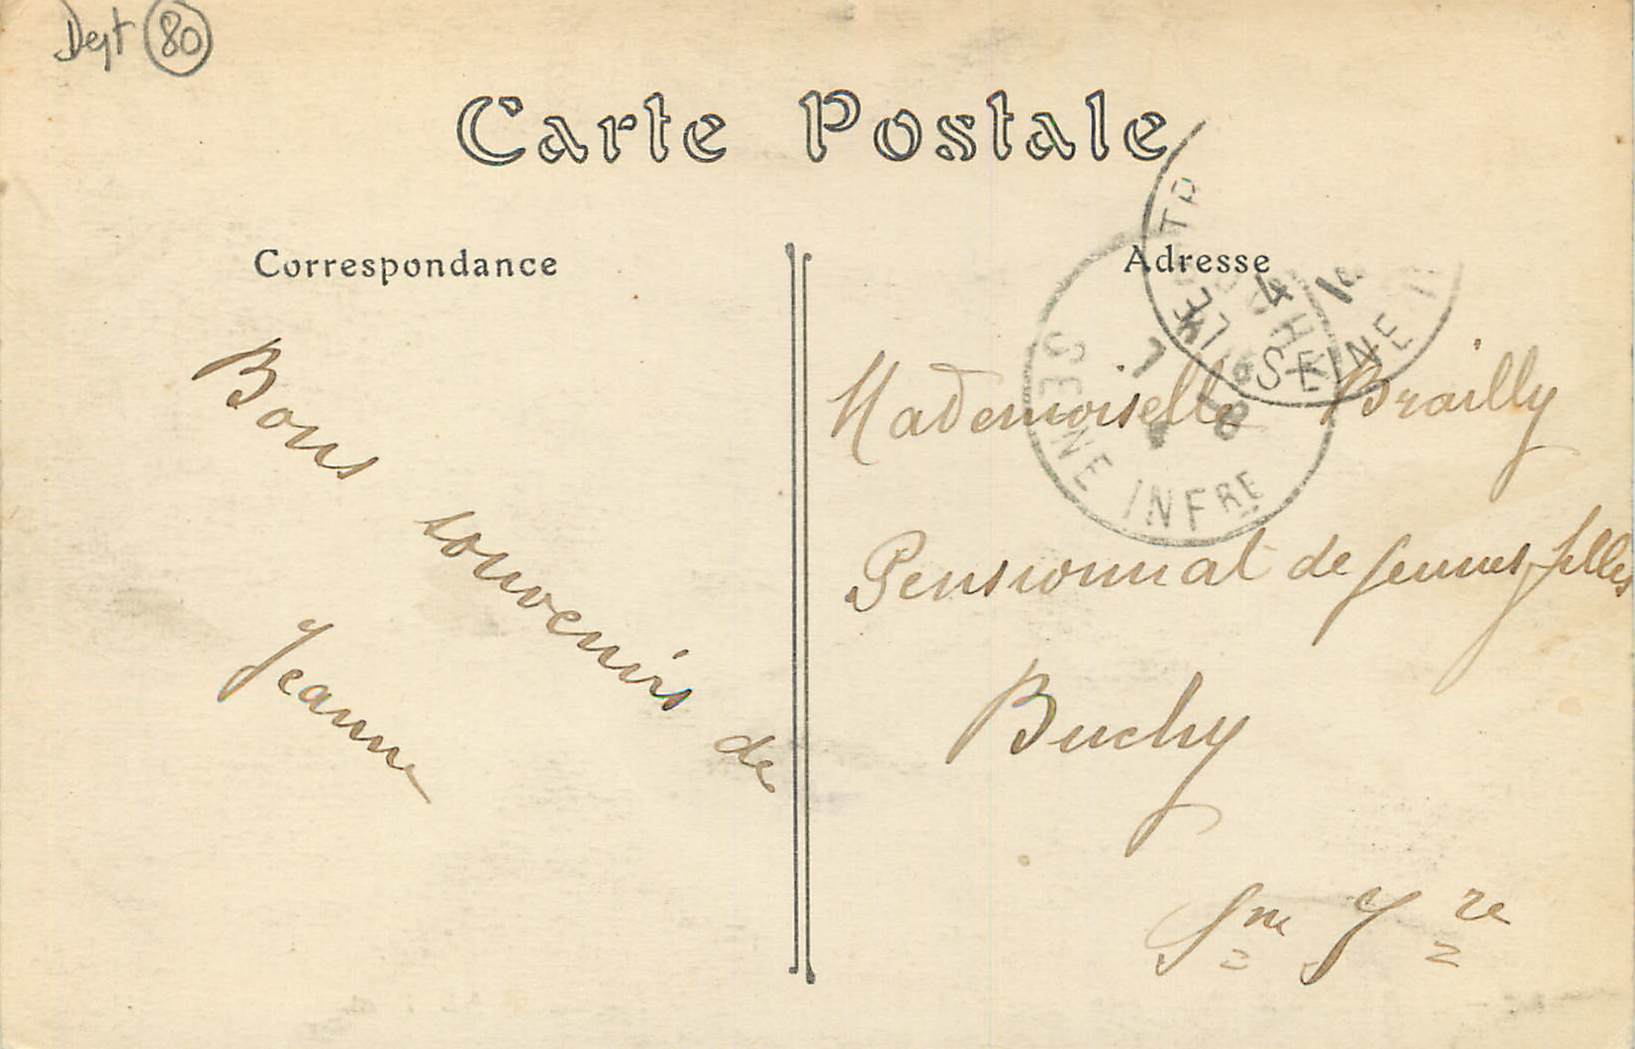 Dept 80
Carte Postale
Correspondance
Adresse
Bons souvenirs de
Jeanne
Mademoiselle Brailly
Pensionnat de jeunes filles
Buchy
Sne Ire
SEINE INFRE
SEINE